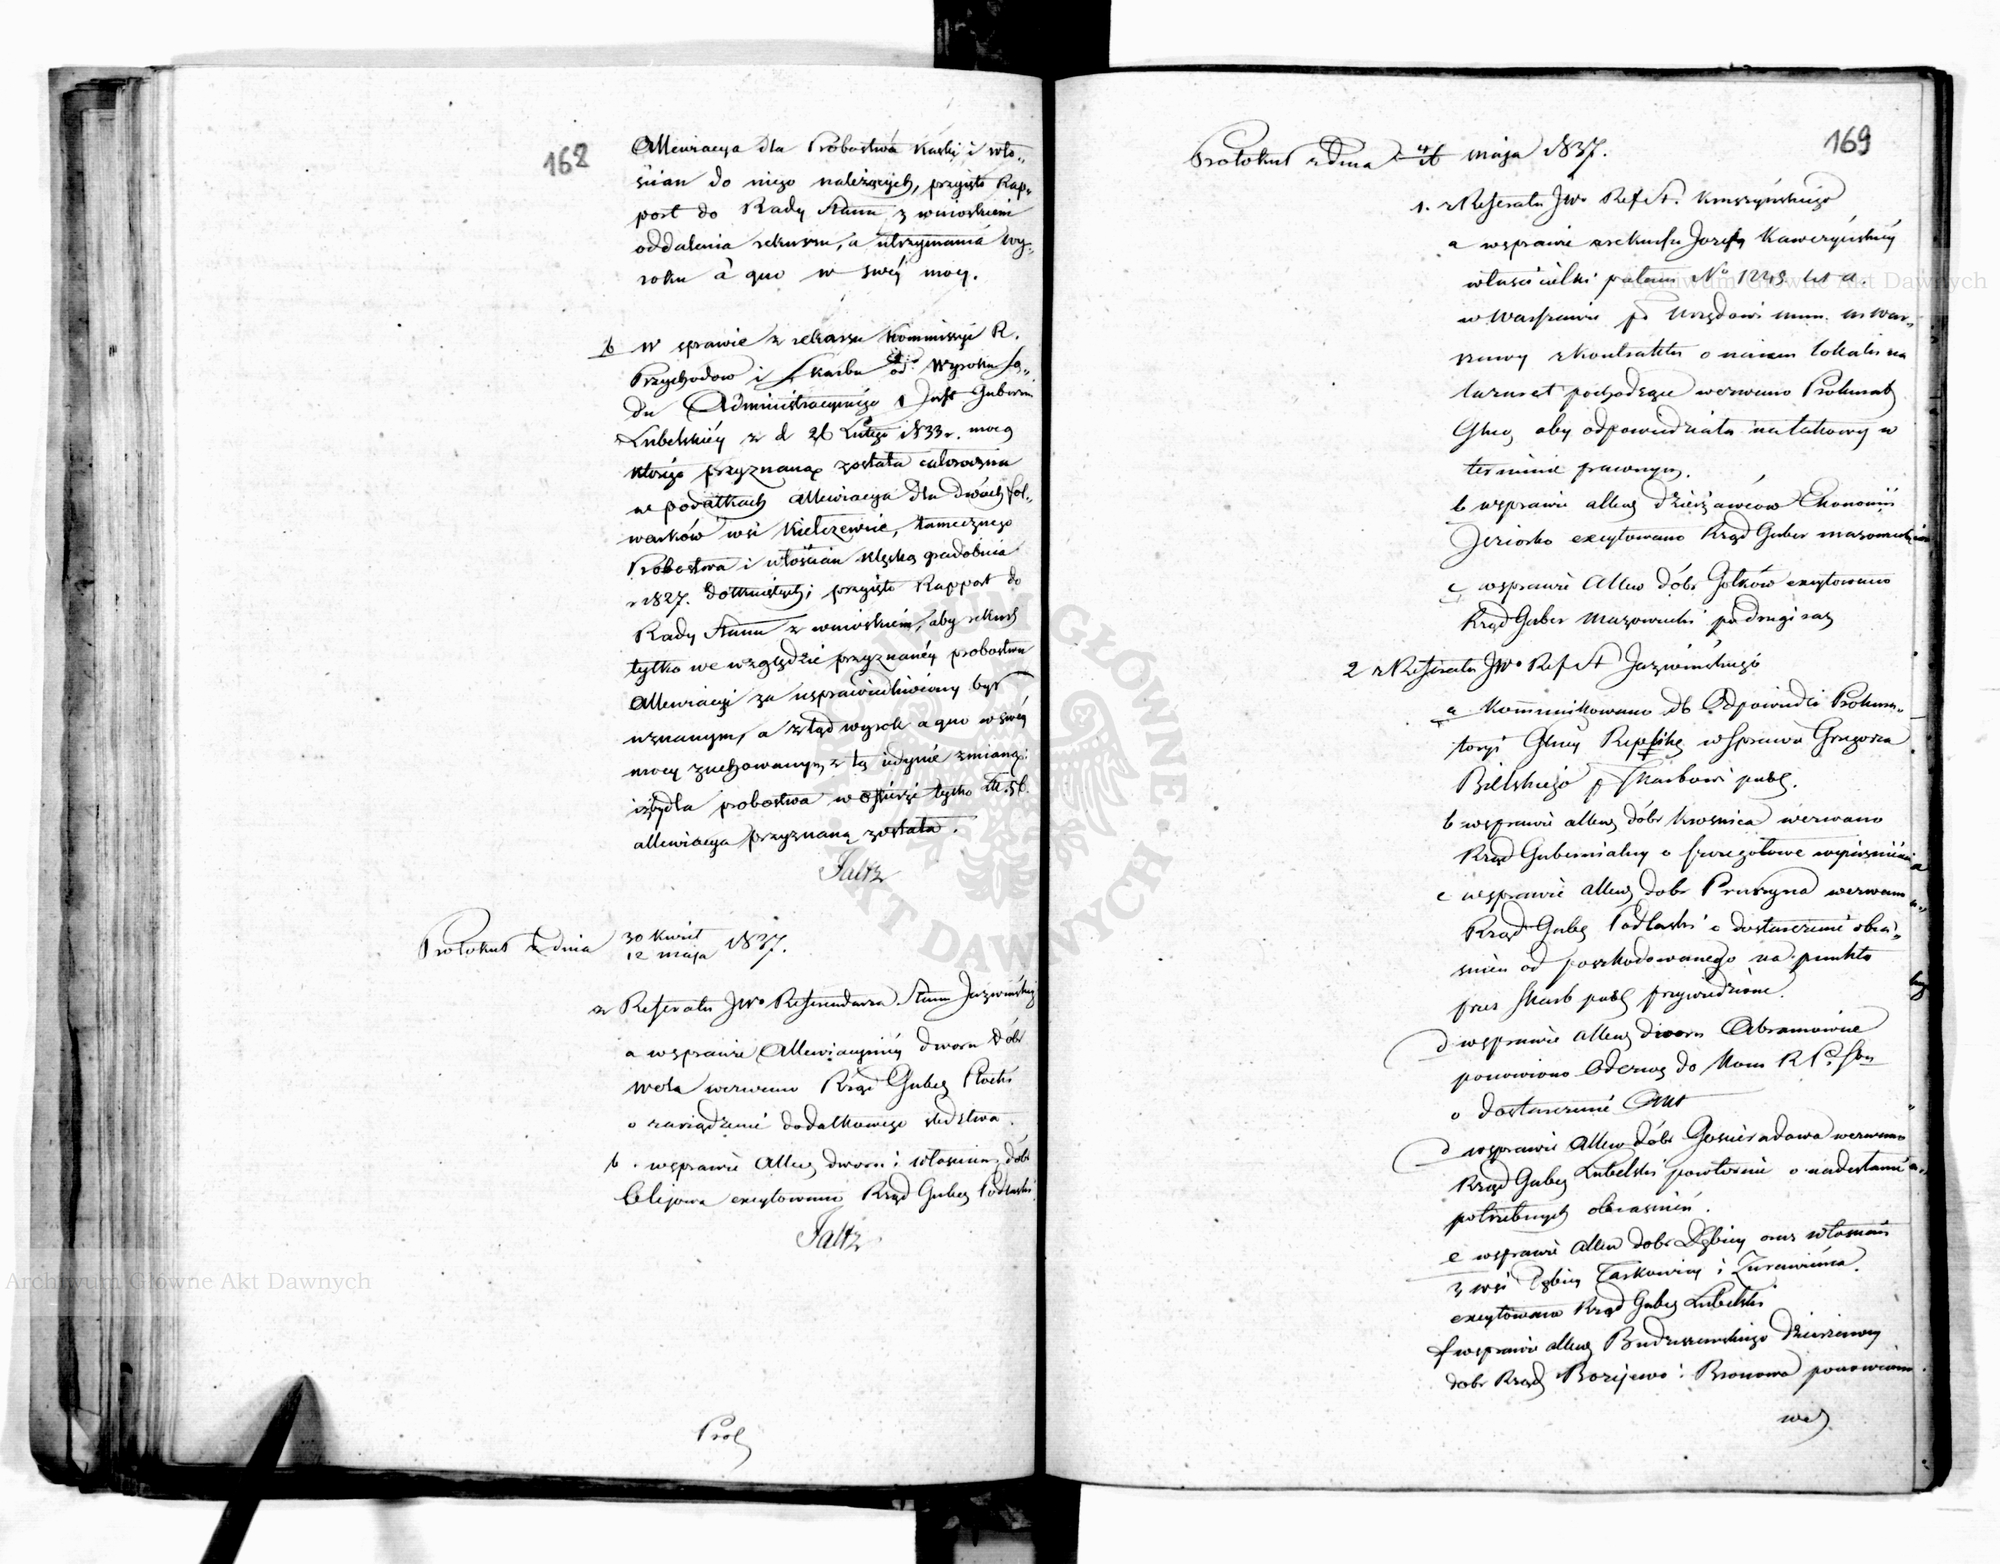 168
Allewiacya dla Probostwa Kaski i wło„
ścian do niego należących, przyięto Rap„
port do Rady Stanu z wnioskiem
oddalenia rekursu, a utrzymania wy„
roku à quo w swéy mocy.
b W sprawie z rekursu Kommissyi R.
Przychodów i Skarbu od Wyroku Są„
du Administracyinego Gubernii
Lubelskiéy z d 26 Lutego 1833 r. mocą
którego przyznaną została całoroczna
w podatkach allewiacya dla dwóch fol„
warków wsi Kiełczewic, tamecznego
Probostwa i włościan klęską gradobicia
r 1827. dotkniętych; przyięto Rapport do
Rady Stanu z wnioskiem, aby rekurs
tylko we względzie przyznanéy probostwu
Allewiacyi za usprawiedliwiony był
uznanym, a ztąd wyrok a quo w swéy
mocy zachowanym, z tą iedynie zmianą:
iżby dla probostwa w ofierze tylko
allewiacya przyznaną została.
Faltz
Protokuł z dnia 30 Kwiet
12 maja 1837.
z Referatu JWo Referendarza Stanu Jazwińskiego
a w sprawie Allewiacyinéy dworu dóbr
Wola wezwano Rząd Guber Płocki
o zarządzenie dodatkowego śledstwa.
b. w sprawie Allew dworu i włościan dóbr
excytowano Rząd Guber Podlaski
Faltz
Prot
169
Protokuł z dnia maja 1837.
1. z Referatu JWo Ref St. Kruszyńskiego
a w sprawie z rekursu Józefy Kaweczyńskiéy
właścicielki pałacu No 1249 lit a.
w Warszawie Urzędowi mun. m War„
szawy z kontraktu o naiem lokalu na
lazaret pochodzące wezwano Prokurat
Glną aby odpowiedziała na takowy w
terminie prawnym.
b w sprawie allew dzierżawców Ekonomii
Jeziorko excytowano Rząd Guber mazowiecki
c w sprawie Allew dóbr Gołków excytowano
Rząd Guber Mazowiecki po drugi raz
2 z Referatu JWo Ref St Jazwińskiego
a Kommunikowano do Odpowiedzi Prokura„
toryi Glnéy Replikę w Sprawie Grzegorza
Bielskiego Skarbowi publ.
b w sprawie allew dóbr Krośnica wezwano
Rząd Gubernialny o szczegółowe wyiaśnienia
c w sprawie allew dobr Pruszyna wezwano
Rząd Guber Podlaski o dostarczenie obia„
śnien od poszkodowanego na punkta
przez Skarb publ przywiedzione.
d w sprawie allew dworu Abramowice
ponowiono Odezwę do Kom R P i Sbu
o dostarczenie Akt
d w sprawie Allew dóbr Gościeradowa wezwano
Rząd Guber Lubelski powtórnie o nadesłanie
potrzebnych obiaśnien.
e w sprawie Allew dobr Dębicy oraz włościan
z wsi Dębicy Tarkowicy i Żurawińca.
excytowano Rząd Guber Lubelski
f w sprawie allew Budziszewskiego dzierżawcy
dobr Rząd Borzijewo i Bronowa ponowiono
wez
Archiwum Główne Akt Dawnych
Archiwum Główne Akt Dawnych
ARCHIWUM GŁÓWNE AKT DAWNYCH